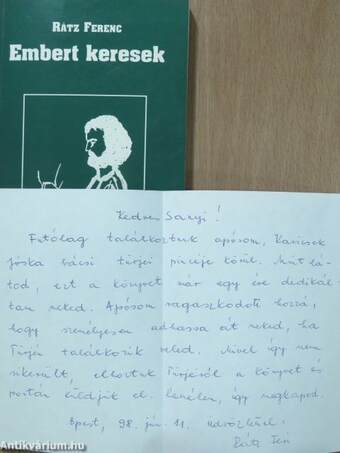 RÁTZ FERENC
Embert keresek
Kedves Sanyi!
Futólag találkoztunk apósom, Karicsek
Jóska bácsi türjei pincéje körül. Mint lá-
tod, ezt a könyvet már egy éve dedikál-
tam neked. Apósom ragaszkodott hozzá,
hogy személyesen adhassa át neked, ha
Türjén találkozik veled. Mivel így nem
sikerült, elhoztuk Türjéről a könyvet és
postán küldjük el. Remélem, így megkapod.
Bpest, 98. jún. 11. Üdvözlettel:
Rátz Feri
Antikvárium.hu